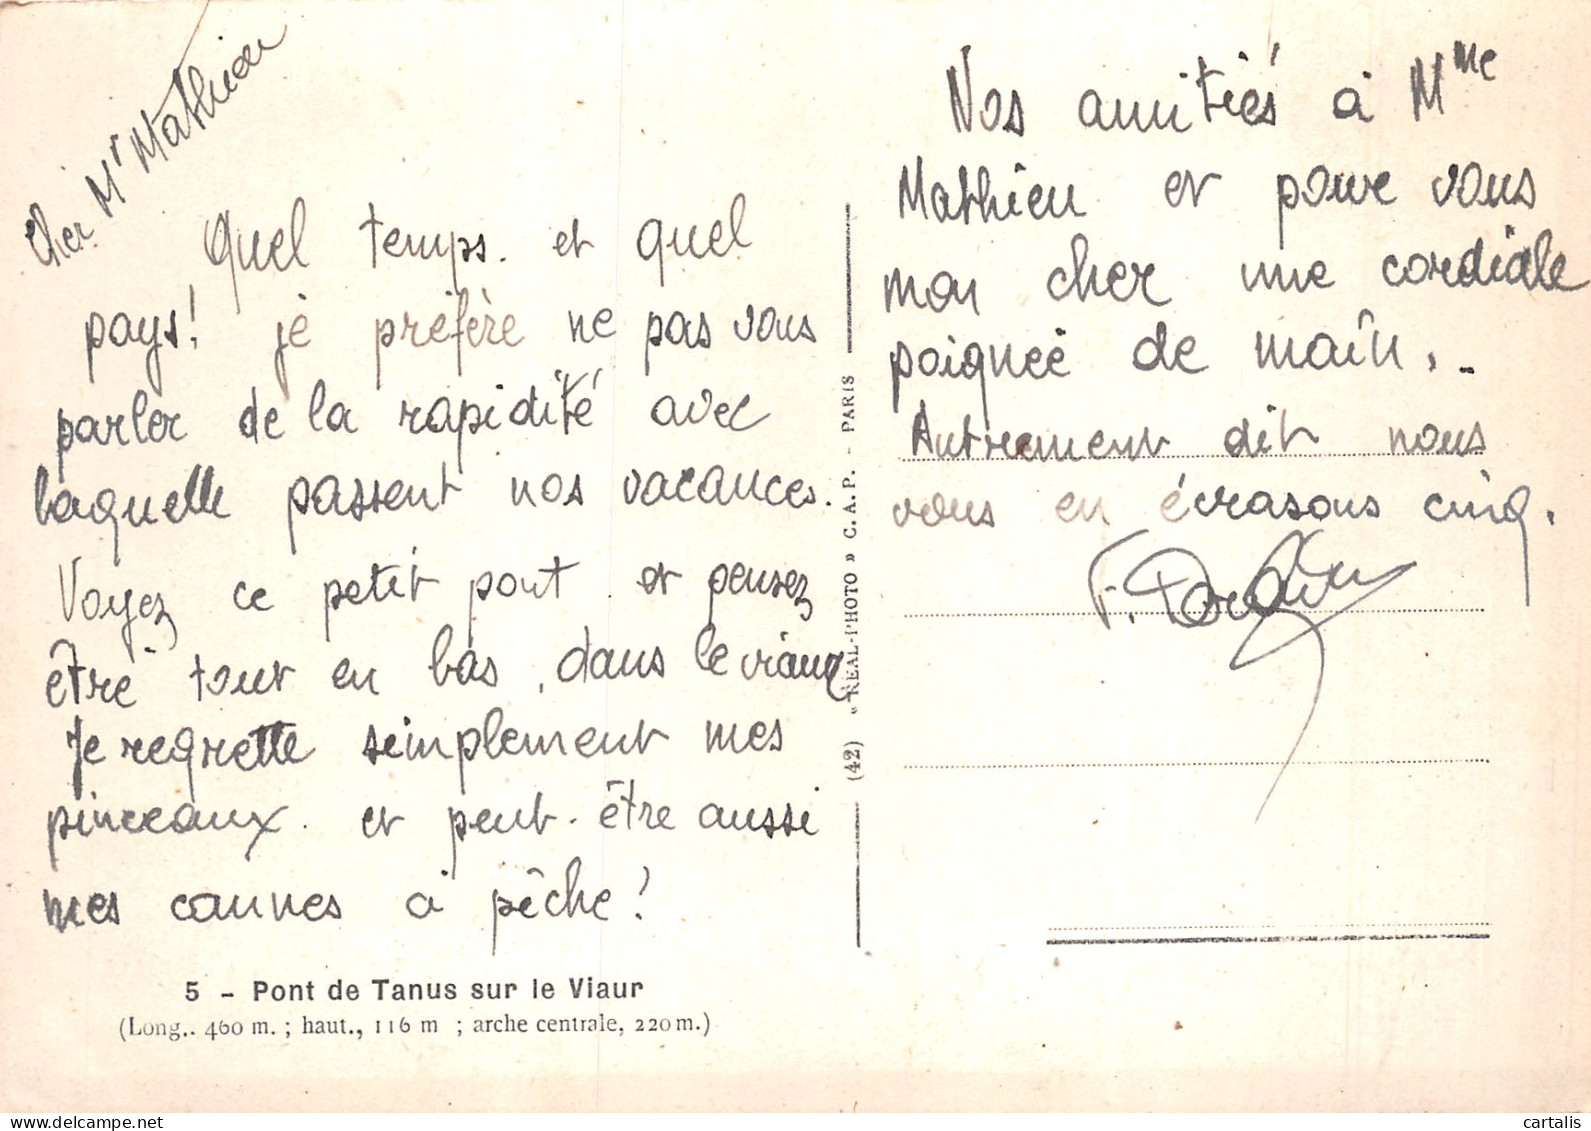 Cher Mr Mathieu
Quel temps. et quel
pays! je préfère ne pas vous
parler de la rapidité avec
laquelle passent nos vacances.
Voyez ce petit pont. et pensez
être tout en bas, dans le viaur
Je regrette simplement mes
pinceaux. et peut-être aussi
mes cannes à pêche!
5 - Pont de Tanus sur le Viaur
(Long.. 460 m. ; haut., 116 m ; arche centrale, 220 m.)
(42) « REAL-PHOTO » C. A. P. - PARIS
Nos amitiés à Mme
Mathieu et pour vous
mon cher une cordiale
poignée de main. -
Autrement dit nous
vous en écrasons cinq.
cartalis
delcampe.net